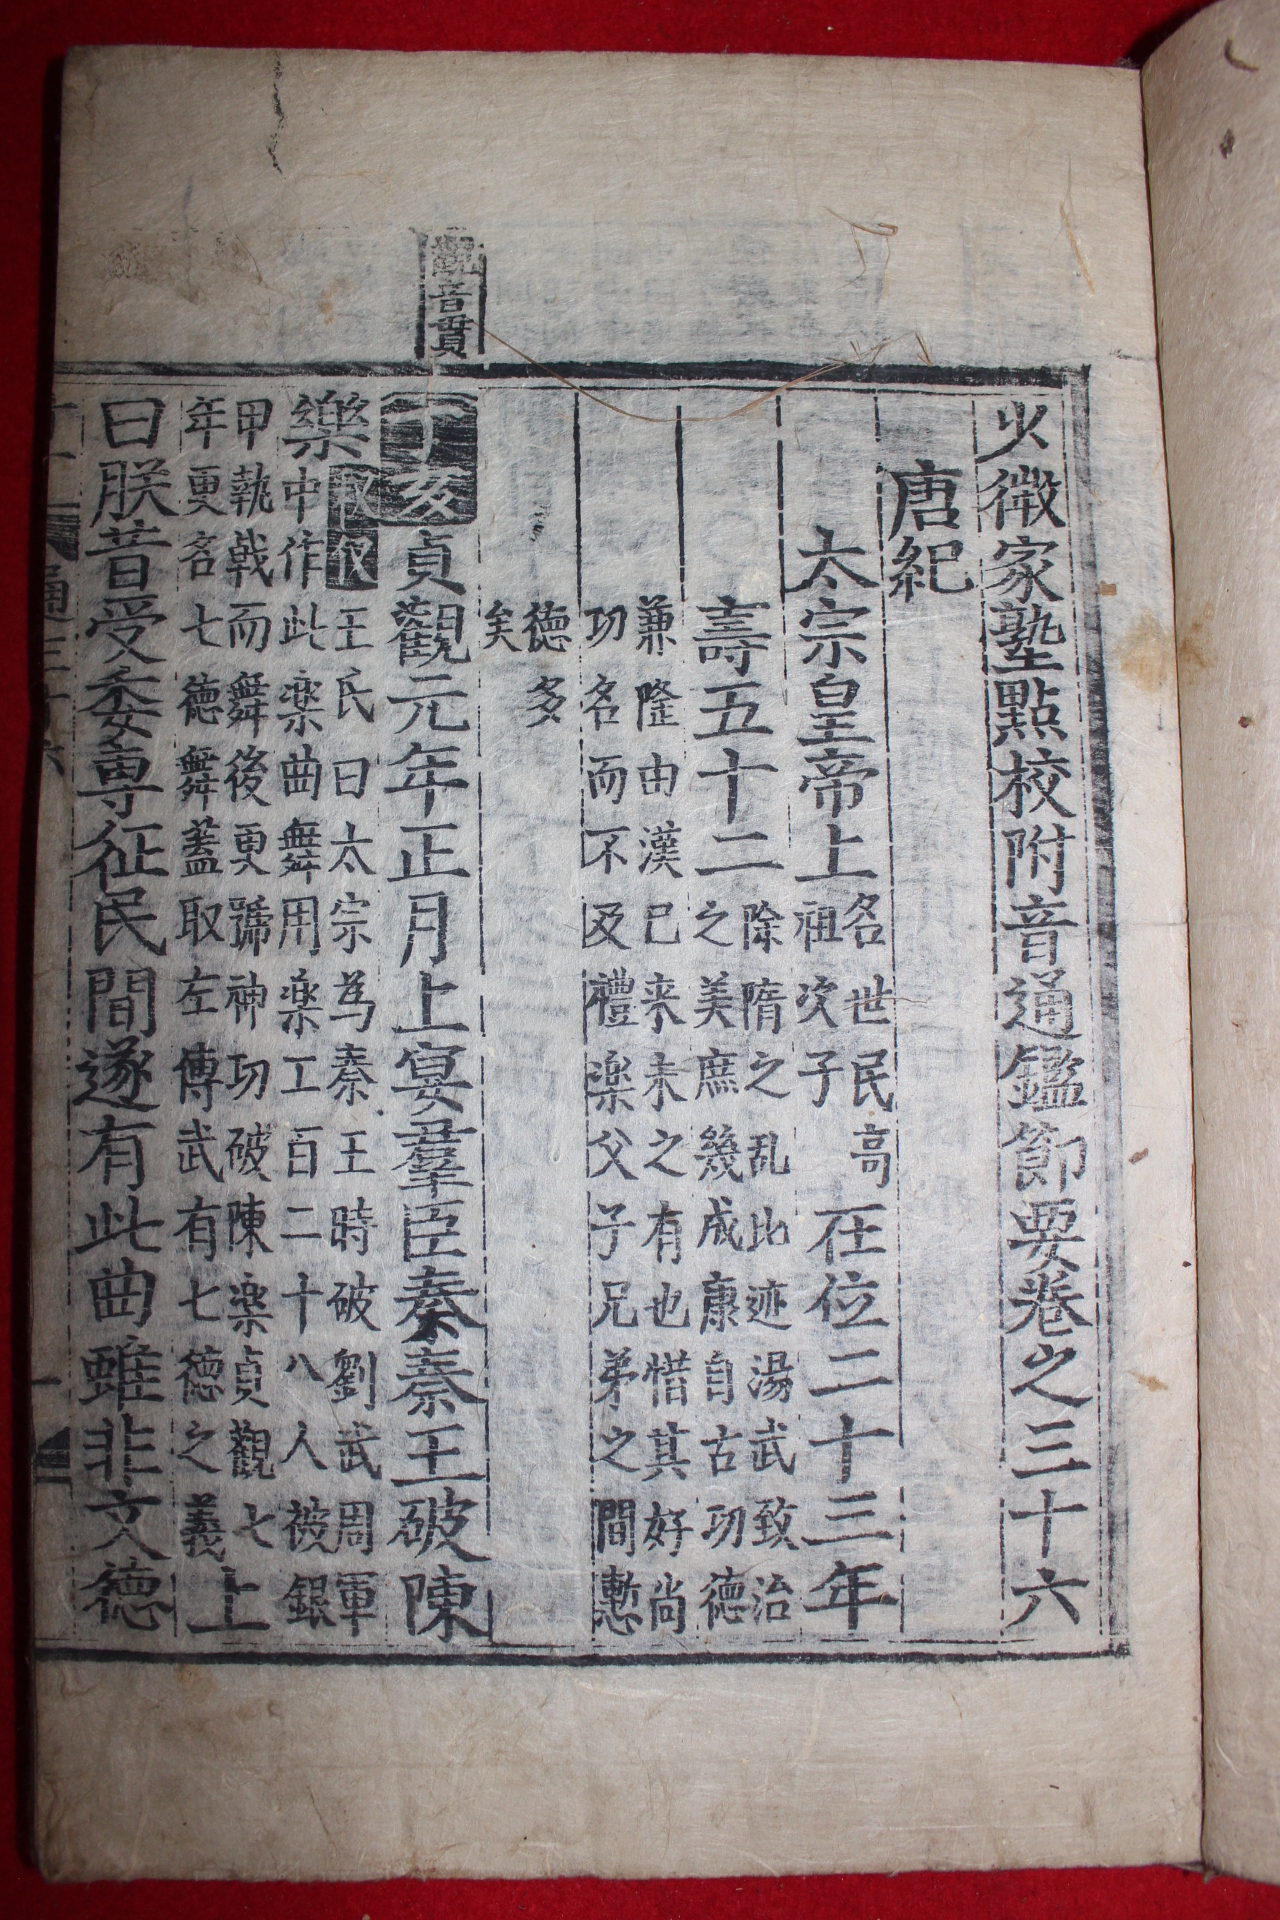 少微家塾點校附音通鑑節要卷之三十六
唐紀
太宗皇帝上
名世民高
祖次子
在位二十三年
壽五十二
除隋之乱比迹湯武致治
之美庶幾成康自古功德
兼隆由漢已来未之有也惜其好尚
功名而不及禮楽父子兄弟之間慙
德多
矣
觀音貫
丁亥貞觀元年正月上宴羣臣奏秦王破陳
樂
王氏曰太宗為秦王時破劉武周軍
中作此楽曲舞用楽工百二十八人被銀
甲執戟而舞後更號神功破陳楽貞觀七
年更名七德舞蓋取左傳武有七德之義
上
曰朕昔受委專征民間遂有此曲雖非文德
通三十六
一